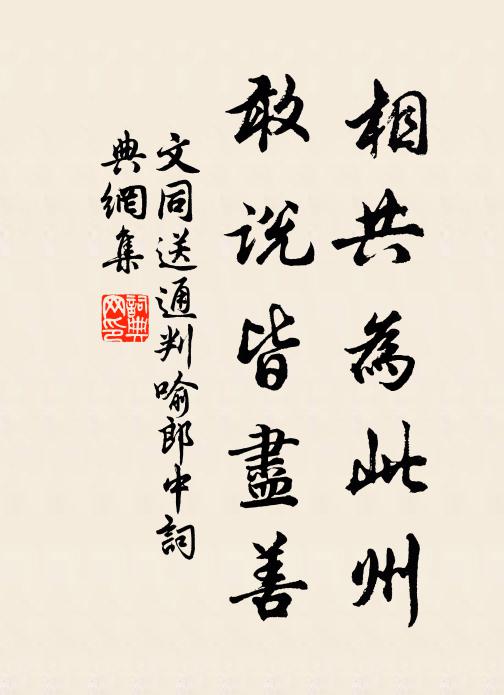 相共為此州
敢說皆盡善
文同送通判喻郎中詞
典網集
詞典
网印